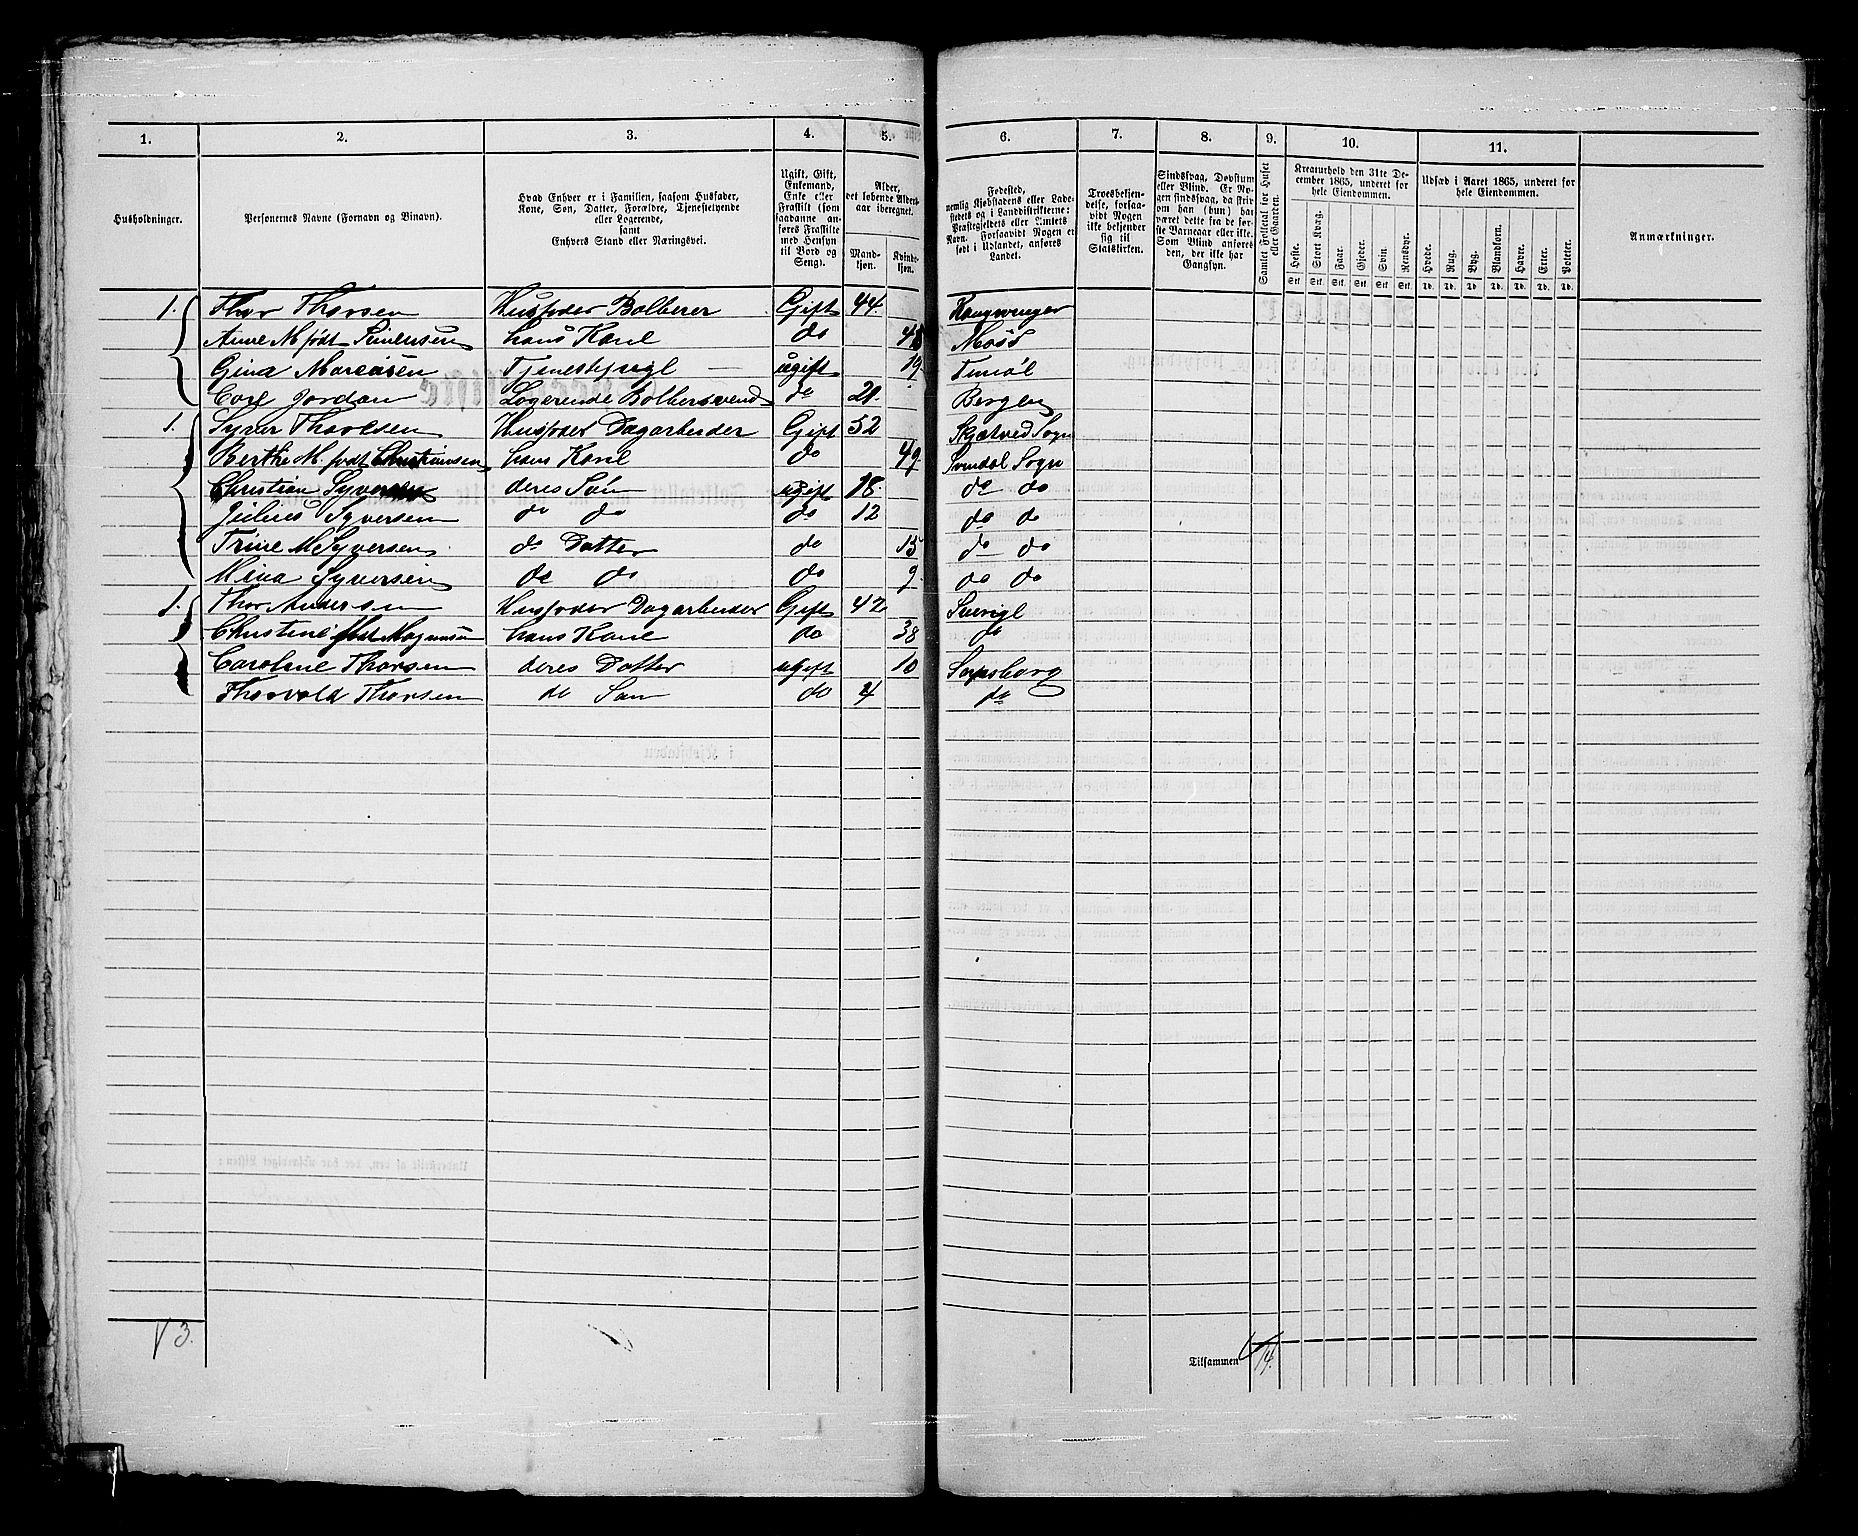 1. 2. 3. 4. 5. 6. 7. 8. 9. 10. 11.
Husholdninger.
Personernes Navne (Fornavn og Binavn).
Hvad Enhver er i Familien, saasom Husfader,
Kone, Søn, Datter, Forældre, Tjenestetyende
eller Logerende,
samt
Enhvers Stand eller Næringsvei.
Ugift, Gift,
Enkemand,
Enke eller
Fraskilt (som
saadanne an-
føres Fraskilte
med Hensyn
til Bord og
Seng).
Alder,
det løbende Alders-
aar iberegnet.
Mand-
kjøn.
Kvinde-
kjøn.
Fødested,
nemlig Kjøbstadens eller Lade-
stedets og i Landdistrikterne:
Præstegjeldets eller Amtets
Navn. Forsaavidt Nogen er
født i Udlandet, anføres
Landet.
Troesbekjen-
delse, forsaa-
vidt Nogen
ikke bekjender
sig til
Statskirken.
Sindssvag, Døvstum
eller Blind. Er No-
gen sindssvag, da skriv
om han (hun) har
været dette fra de før-
ste Barneaar eller ikke.
Som Blind anføres
den, der ikke har
Gangsyn.
Samlet Folketal for Huset
eller Gaarden.
Kreaturhold den 31te De-
cember 1865, underet for
hele Eiendommen.
Heste. Stort Kvæg. Faar. Gjeder. Svin. Rensdyr.
Stk. Stk. Stk. Stk. Stk. Stk.
Udsæd i Aaret 1865, underet for
hele Eiendommen.
Hvede. Rug. Byg. Blandkorn. Havre. Erter. Poteter.
Td. Td. Td. Td. Td. Td. Td.
Anmærkninger.
1. Thor Thorsen Husfader Bolberer Gift 44 Kongsvinger
Anne M født hans Kone do Moss
Gina Tjenestepige ugift 19
Carl Jordan Logerende Bolbersvend do 21 Bergen
1. Syver Husfoder Dagarbeider Gift 52 Skjætved Sogn
Berthe M. født Christiansen hans Kone do 49 Svindal Sogn
Christian Syversen deres Søn ugift 18. do do
Julius Syversen do do do 12 do do
Trine M Syversen do Datter do 15 do do
Mina Syversen do do do 9 do do
1. Thor Andersen Husfoder Dagarbeider Gift 42 Sverige
Christine født Magnusen hans Kone do 38 do
Caroline Thorsen deres Datter ugift 10 Sarpsborg
Thorvald Thorsen do Søn do 4 do
3.
Tilsammen 14.